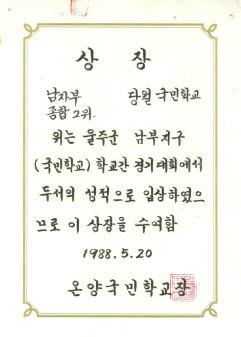 상장
남자부 당월 국민학교
종합 2위.
위는 울주군 남부지구
(국민학교) 학교간 경기대회에서
두서의 성적으로 입상하였으
므로 이 상장을 수여함
1988.5.20
온양국민학교장